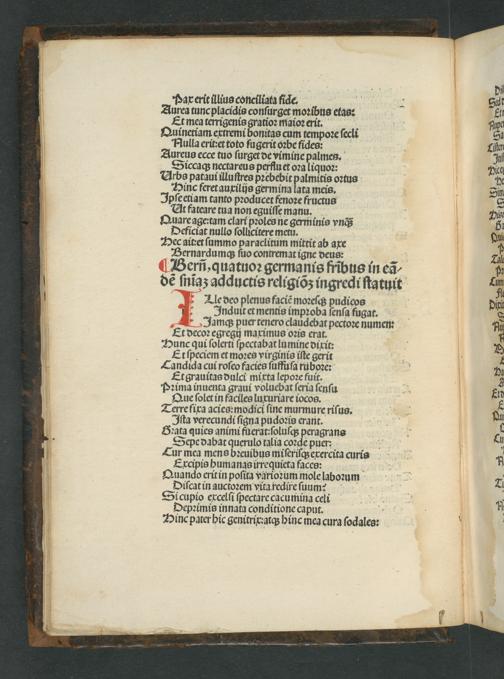 Pax erit illius conciliata fide.
Aurea tunc placidis consurget moribus etas:
Et mea terrigenis gratior maior erit.
Quinetiam extremi bonitas cum tempore secli
Nulla erit: et toto fugerit orbe fides:
Aureus ecce tuo surget de vimine palmes.
Siccaqꝫ nectareus perfluet ora liquor:
Urbs pataui illustres prebebit palmitis ortus
Hinc feret auxilijs germina lata meis.
Ipse etiam tanto producet fenore fructus
Ut fateare tua non eguisse manu.
Quare age: tam clari proles ne germinis vnqꝫ
Deficiat nullo sollicitere metu.
Hec ait: et summo paraclitum mittit ab axe
Bernardumqꝫ suo contremat igne deus:
¶ Bern̄, quatuor germanis fr̄ibus in eā-
dē sn̄iaꝫ adductis religiōꝫ ingredi statuit
Ille deo plenus faciē moresqꝫ pudicos
Induit et mentis improba sensa fugat.
Iamqꝫ puer tenero claudebat pectore numen:
Et decor egregij maximus oris erat.
Hunc qui solerti spectabat lumine dixit:
Et speciem et mores virginis iste gerit
Candida cui roseo facies suffusa rubore:
Et grauitas dulci mixta lepore fuit.
Prima inuenta graui voluebat seria sensu
Que solet in faciles luxuriare iocos.
Terre fixa acies: modici sine murmure risus.
Ista verecundi signa pudoris erant.
Grata quies animi fuerat: solusqꝫ peragrans
Sepe dabat querulo talia corde puer:
Cur mea mens breuibus miserisqꝫ exercita curis
Excipis humanas irrequieta faces:
Quando erit in posita variorum mole laborum
Discat in auctorem vita redire suum?
Si cupio excelsi spectare cacumina celi
Deprimis innata conditione caput.
Hinc pater hic genitrix: atqꝫ hinc mea cura sodales: